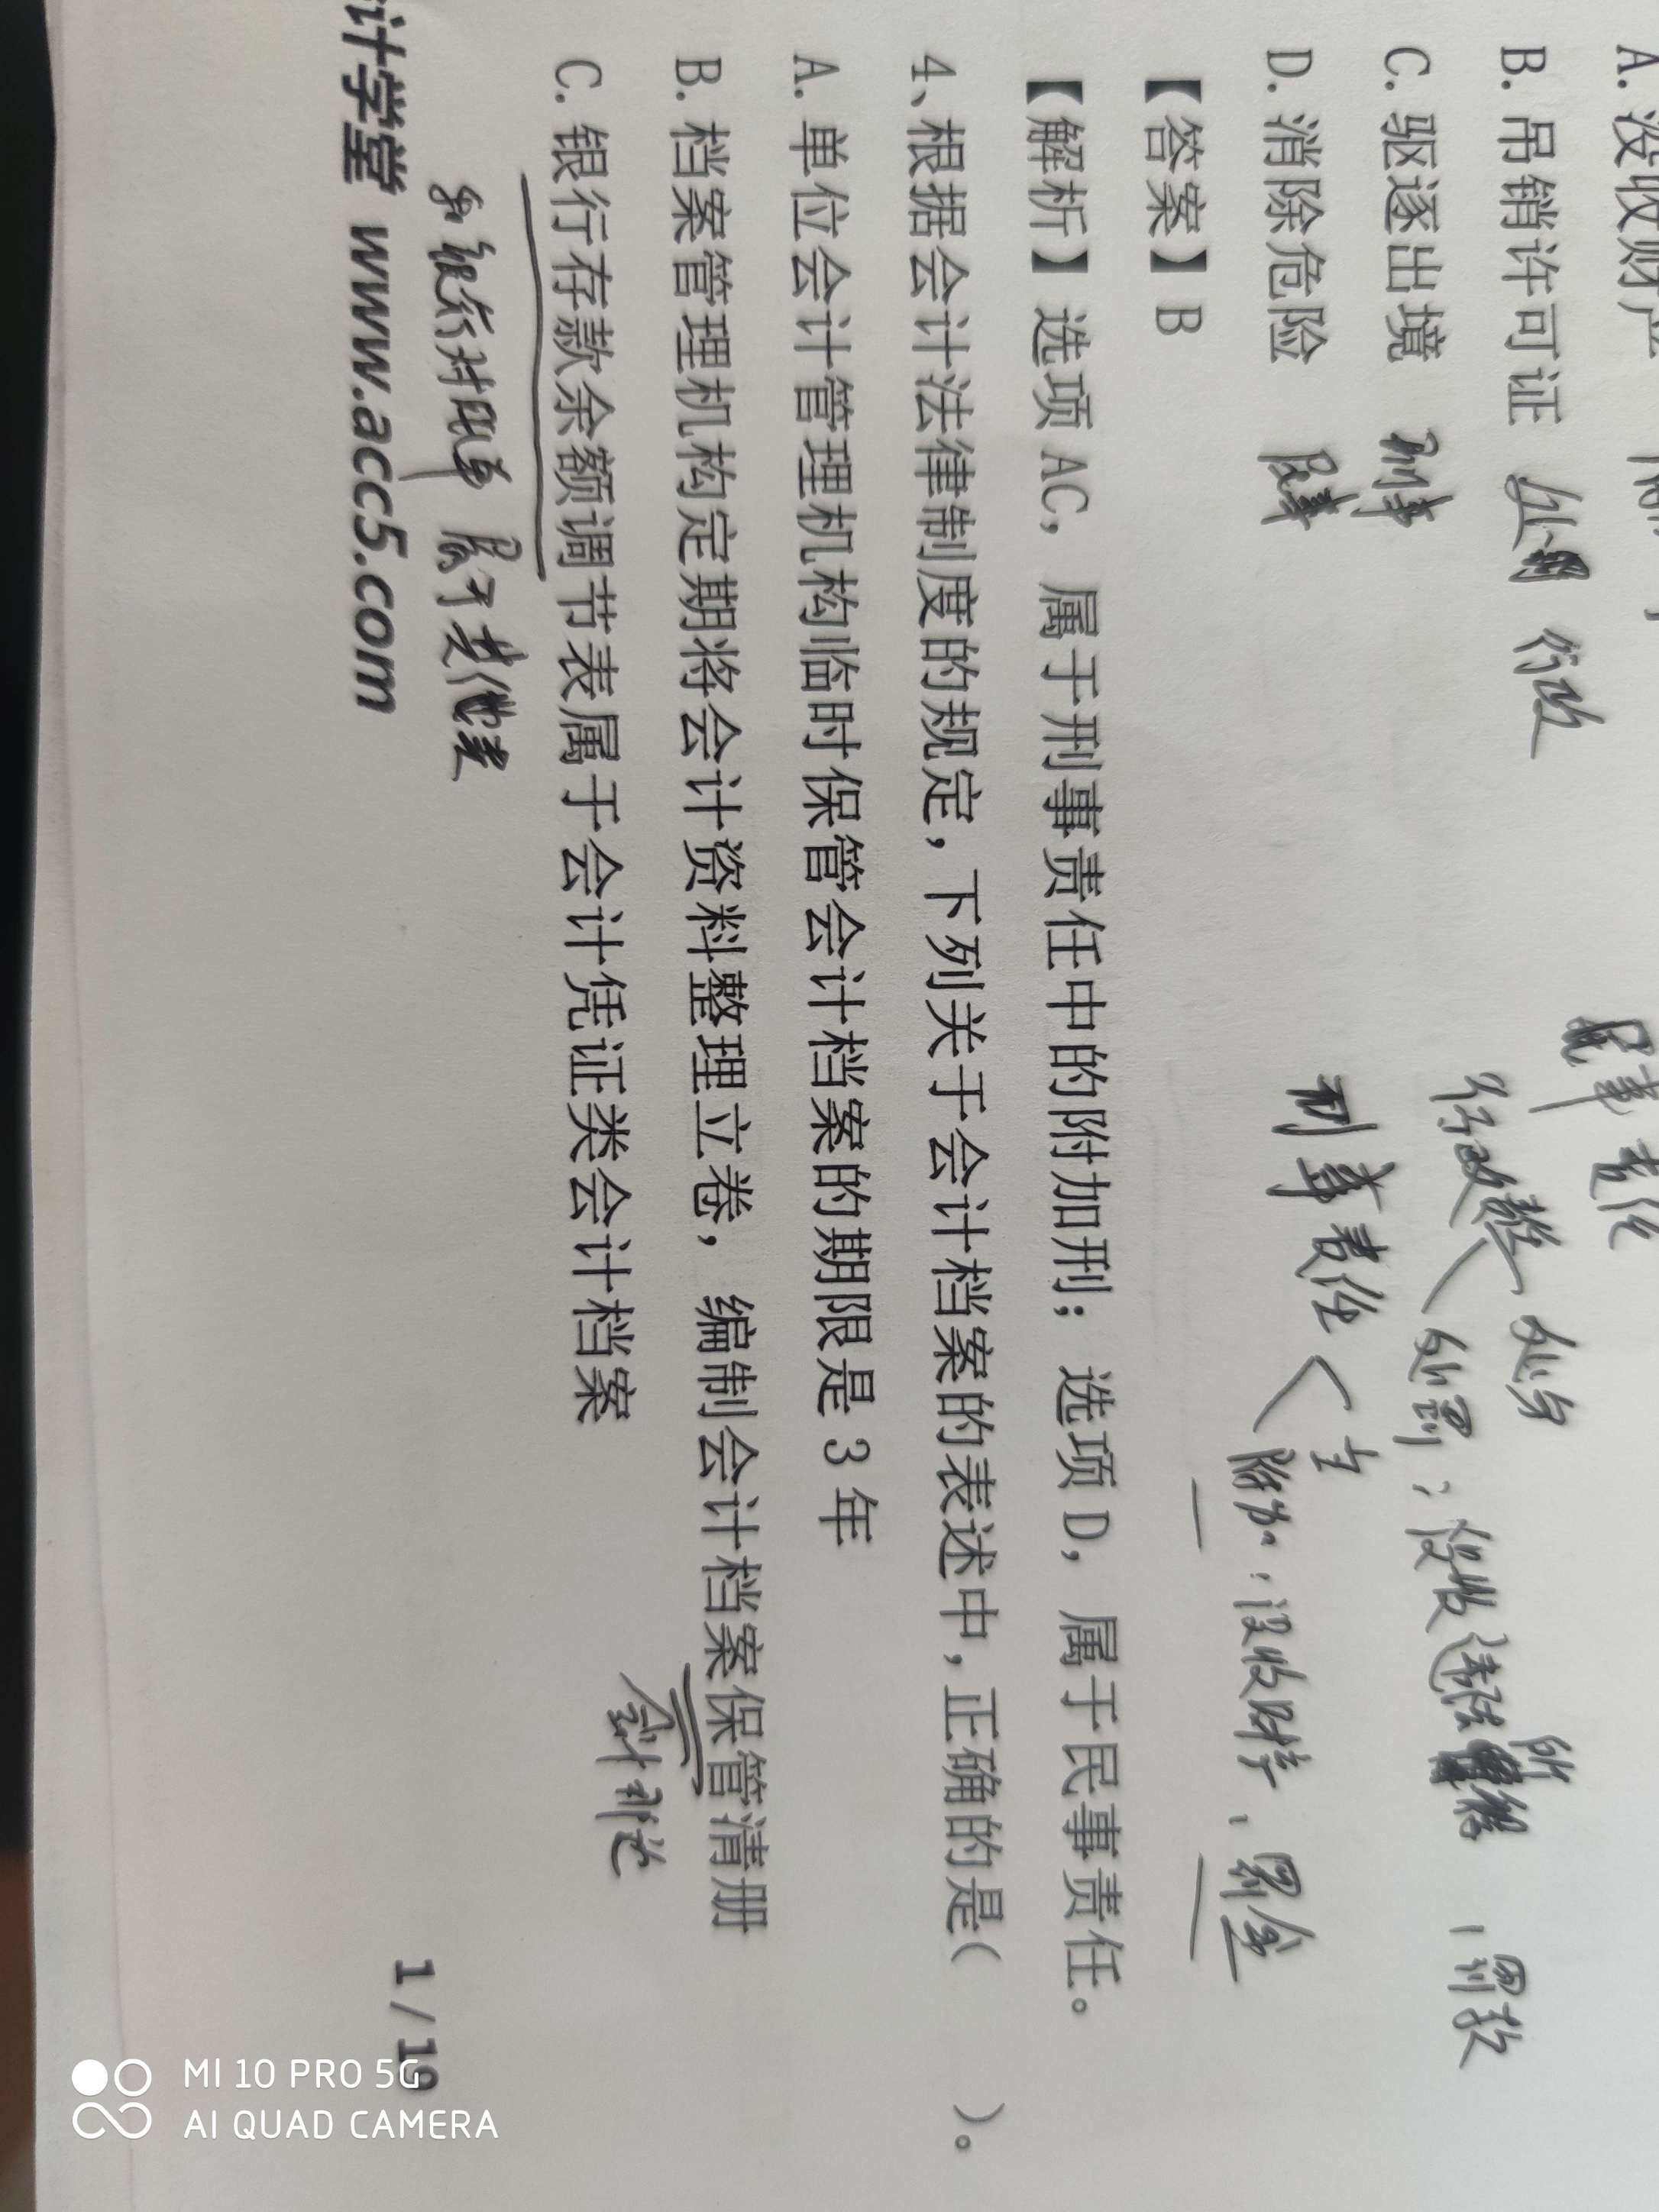 A. 没收财产
B. 吊销许可证 行政
C. 驱逐出境 刑事
D. 消除危险 民事
民事责任
行政责任 处分
处罚: 没收违法所得、罚款
刑事责任 主
附加: 没收财产、罚金
【答案】B
【解析】选项 AC, 属于刑事责任中的附加刑; 选项 D, 属于民事责任。
4、根据会计法律制度的规定, 下列关于会计档案的表述中, 正确的是( )。
A. 单位会计管理机构临时保管会计档案的期限是 3 年
B. 档案管理机构定期将会计资料整理立卷, 编制会计档案保管清册
C. 银行存款余额调节表属于会计凭证类会计档案
和银行对账单 属于其他类
计学堂 www.acc5.com
1 / 19
MI 10 PRO 5G
AI QUAD CAMERA